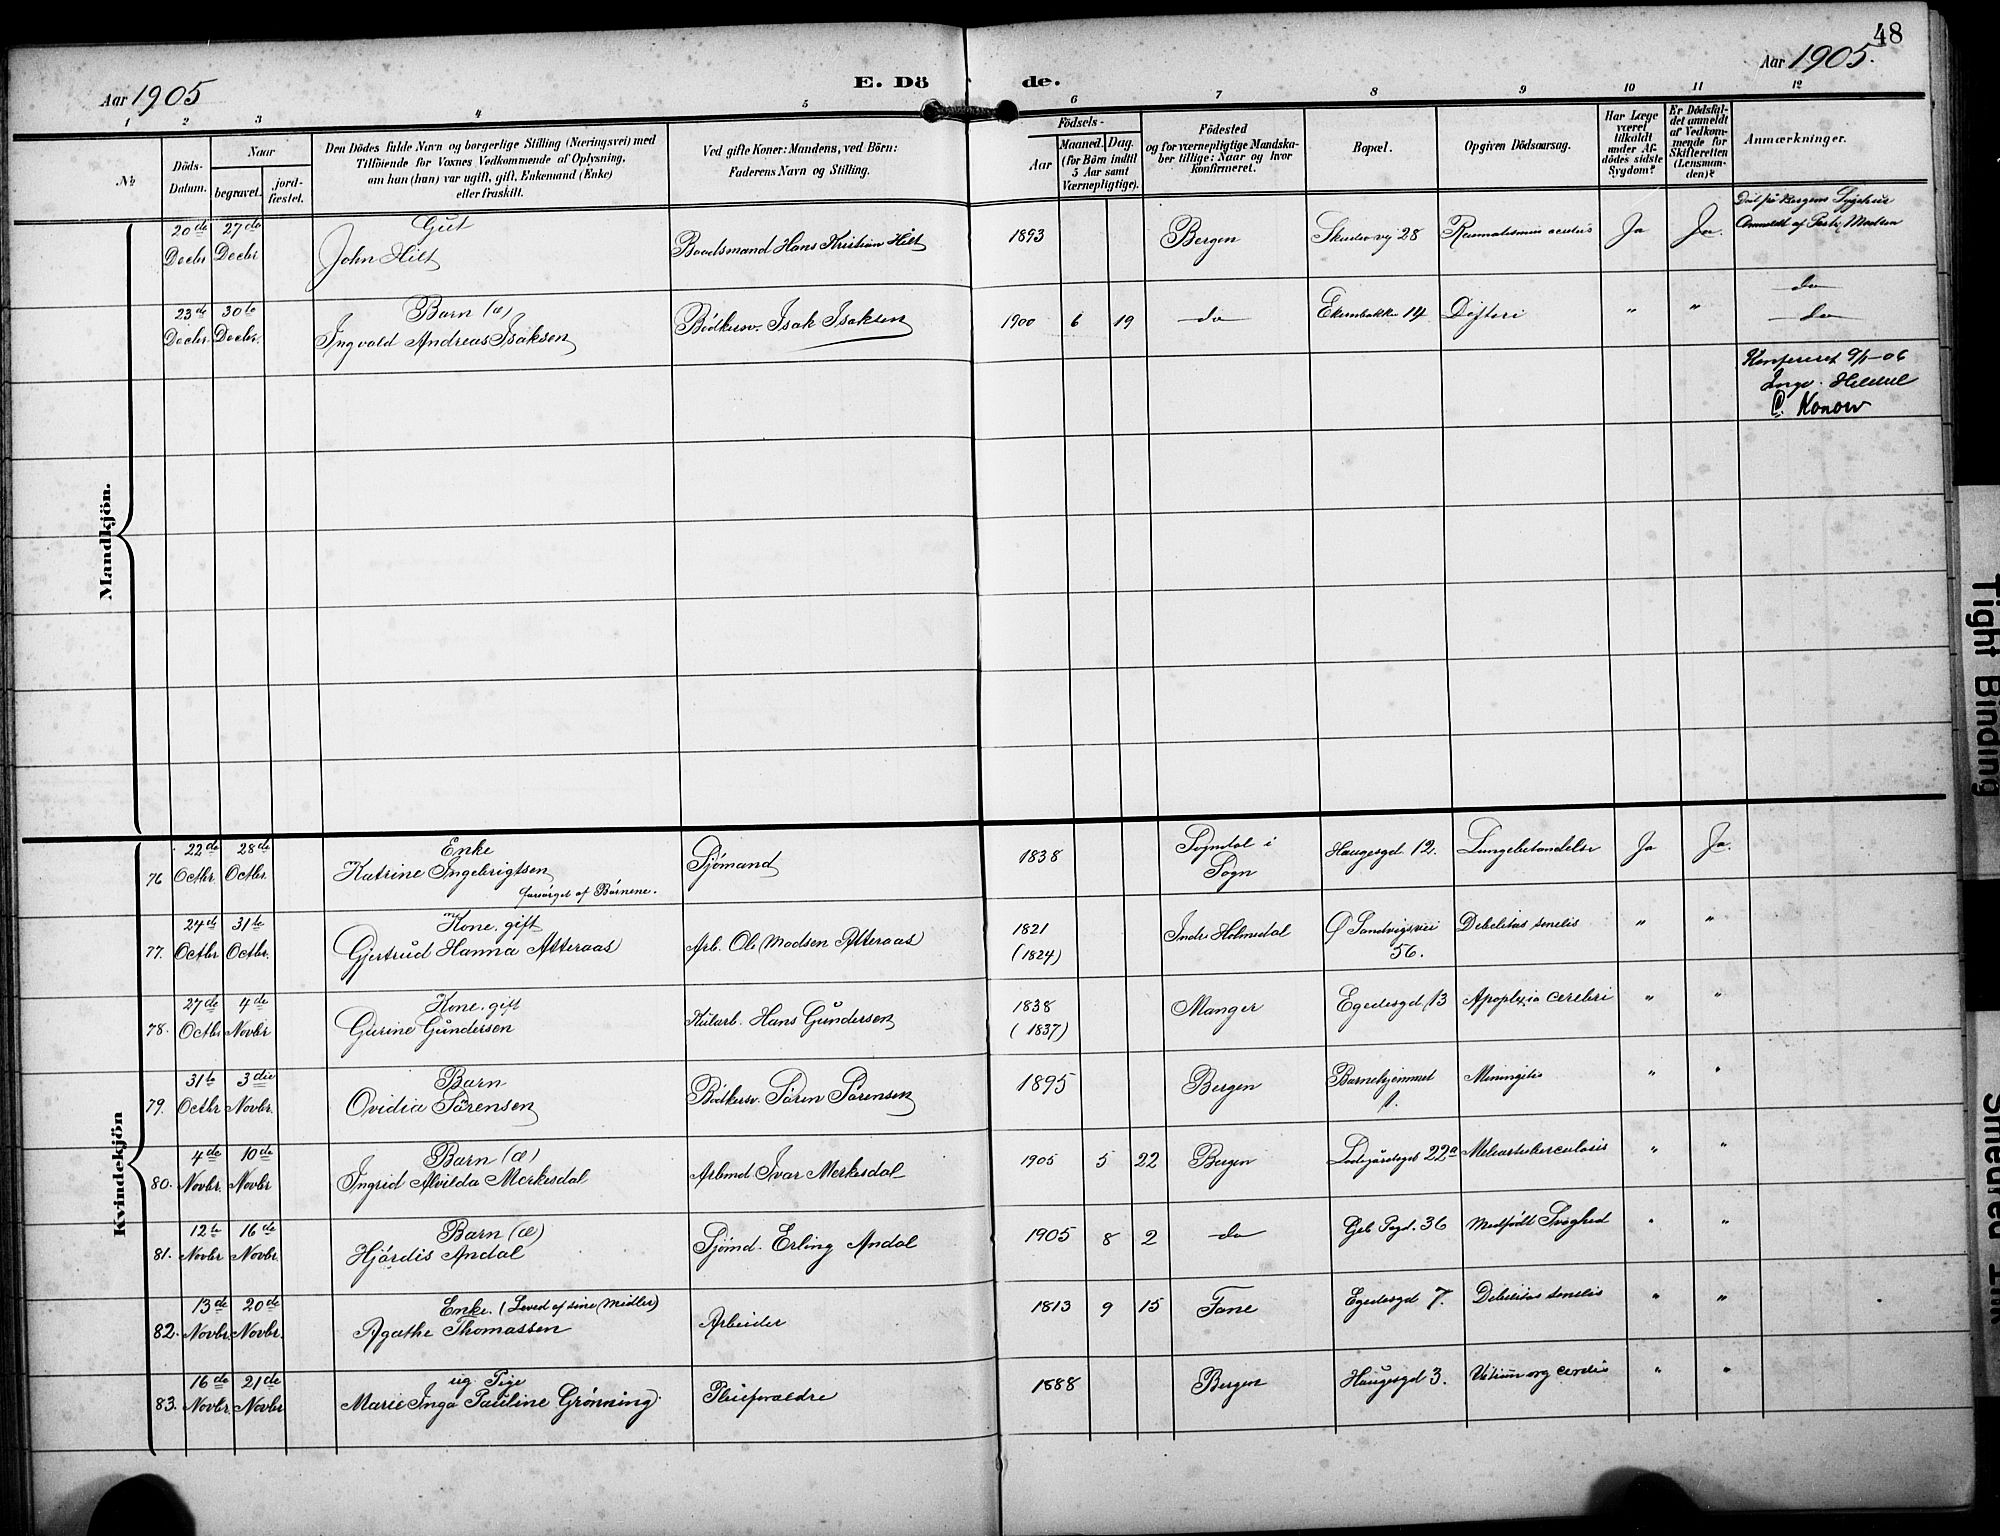 48
Aar 1905
E. Dö de.
Aar 1905.
1 2 3 4 5 6 7 8 9 10 11 12
№
Döds-Datum.
Naar
begravet.
jord-fæstet.
Den Dödes fulde Navn og borgerlige Stilling (Næringsvei) med
Tilföiende for Voxnes Vedkommende af Oplysning,
om han (hun) var ugift, gift, Enkemand (Enke)
eller fraskilt.
Ved gifte Koner: Mandens, ved Börn:
Faderens Navn og Stilling.
Födsels-
Aar
Maaned. Dag.
(for Börn indtil
5 Aar samt
Værnepligtige).
Födested
og for værnepligtige Mandska-
ber tillige: Naar og hvor
konfirmeret.
Bopæl.
Opgiven Dödsaarsag.
Har Læge
været
tilkaldt
under Af-
dödes sidste
Sygdom?
Er Dödsfal-
det anmeldt
af Vedkom-
mende for
Skifteretten
(Lensman-
den)?
Anmærkninger.
Mandkjön.
20de Decbr 27de Decbr Gut
John Hilt Baadsmand Hans Kristian Hilt 1893 Bergen Skudevig 28 Reumatismus acutus Ja Ja. Död på Bergens Sygehus
Anmeldt af Madsen
23de Decbr. 30te Decbr. Barn (æ)
Ingvald Andreas Isaksen Bödkersv. Isak Isaksen 1900 6 19 do 14 Difteri " " do
do
Konfereret 9/1-06
C. Konow
Kvindekjön
76 22de Octbr. 28de Octbr. Enke
Katrine Ingebrigtsen
forsörget af Börnene. Sjömand 1838 Sogndal i
Sogn Haugesgd 12. Lungebetændelse Ja Ja.
77. 24de Octbr 31te Octbr. Kone, gift
Gjertrud Hanna Atteraas Arb. Ole Madsen Atteraas 1821
(1824) Indre Holmedal Ø Sandvigsvei
56. Debilitas senilis " "
78. 27de Octbr 4de Novbr Kone, gift
Gurine Gundersen Kularb. Hans Gundersen 1838
(1837) Manger Egedesgd 13 Apoplexia cerebri " "
79. 31te Octbr 3die Novbr. Barn
Ovidia Sörensen Bödkersv. Sören Sörensen 1895 Bergen Barnehjemmet
1. Meningitis " "
80. 4de Novbr. 10de Novbr Barn (æ)
Ingrid Alvilda Merkesdal Arbmd Ivar Merkesdal 1905 5 22 Bergen Ladegårdsgd 22a " "
81. 12te Novbr 16de Novbr. Barn (æ)
Hjördis Andal Sjömd. Erling Andal 1905 8 2 do 36 Medfödt Svaghed " "
82. 13de Novbr. 20de Novbr. Enke. (Leved af sine Midler)
Agathe Thomassen Arbeider 1813 9 15 Fane Egedesgd 7. Debilitas senilis " "
83. 16de Novbr. 21de Novbr ug Pige
Marie Inga Pauline Grönning Pleieforældre 1888 Bergen Haugesgd 3. Vitium org cordis " "
Tight Binding
Smeared Ink